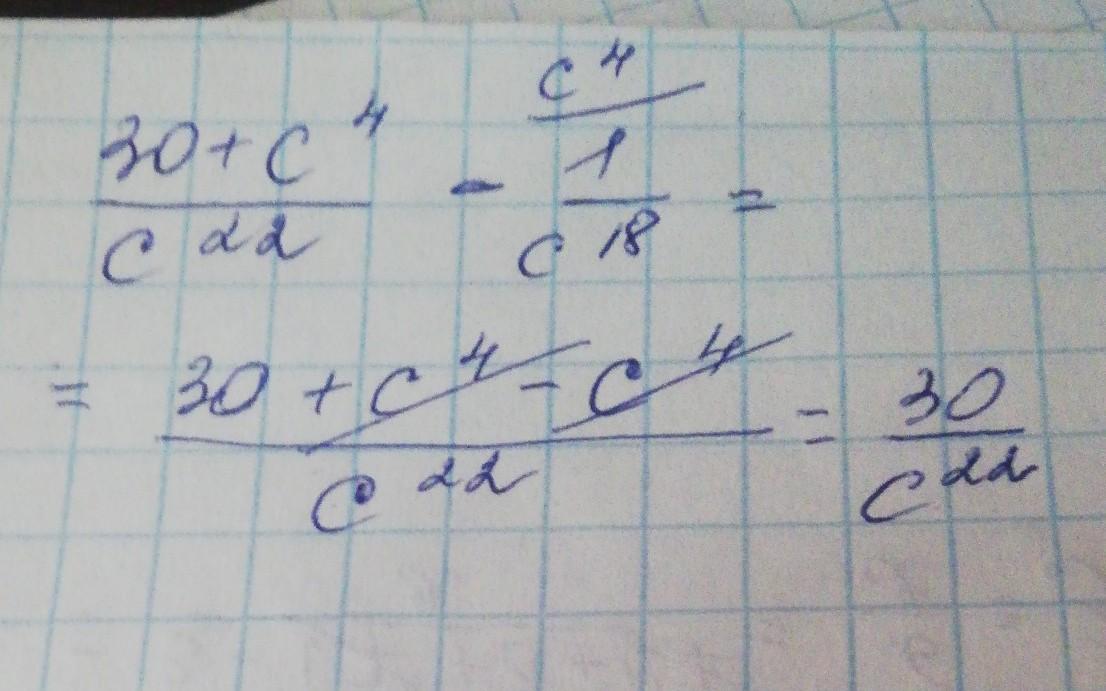 c⁴
(30+c⁴)/c²² - 1/c¹⁸ =
= (30 + c⁴ - c⁴)/c²² = 30/c²²